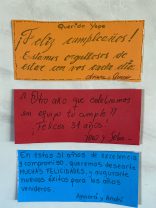 Querido Yepo
¡Feliz cumpleaños!
Estamos orgullosos de
estar con vos este día.
Otro año que celebramos
en equipo tu cumple!!
Felices 31 años!
En estos 31 años de excelencia
y compromiso, queremos desearte
MUCHAS FELICIDADES, y augurarte
nuevos éxitos para los años
venideros.